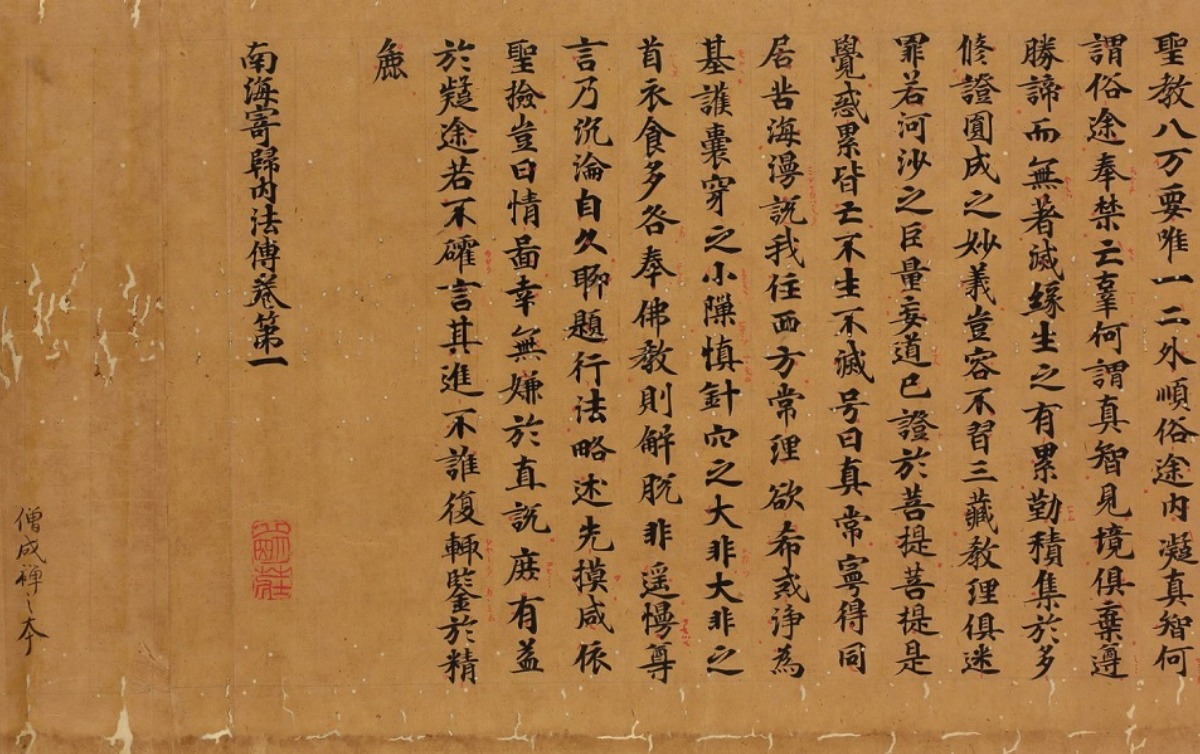 聖教八万要唯一二外順俗途内凝真智何
謂俗途奉禁亡辜何謂真智見境俱棄遵
勝諦而無著滅緣生之有累勤積集於多
修證圓成之妙義豈容不習三藏教理俱迷
罪若河沙之巨量妄道已證於菩提菩提是
覺惑累皆亡不生不滅号曰真常寧得同
居苦海漫説我住西方常理欲希或浄為
基護囊穿之小隟慎針穴之大非大非之
首衣食多咎奉佛教則解脱非遥慢尊
言乃沉淪自久聊題行法略述先摸咸依
聖撿豈曰情啚幸無嫌於直説庶有益
於疑途若不確言其進不誰復輙鑒於精
麁
南海寄歸内法傳卷第一
僧成禅之本